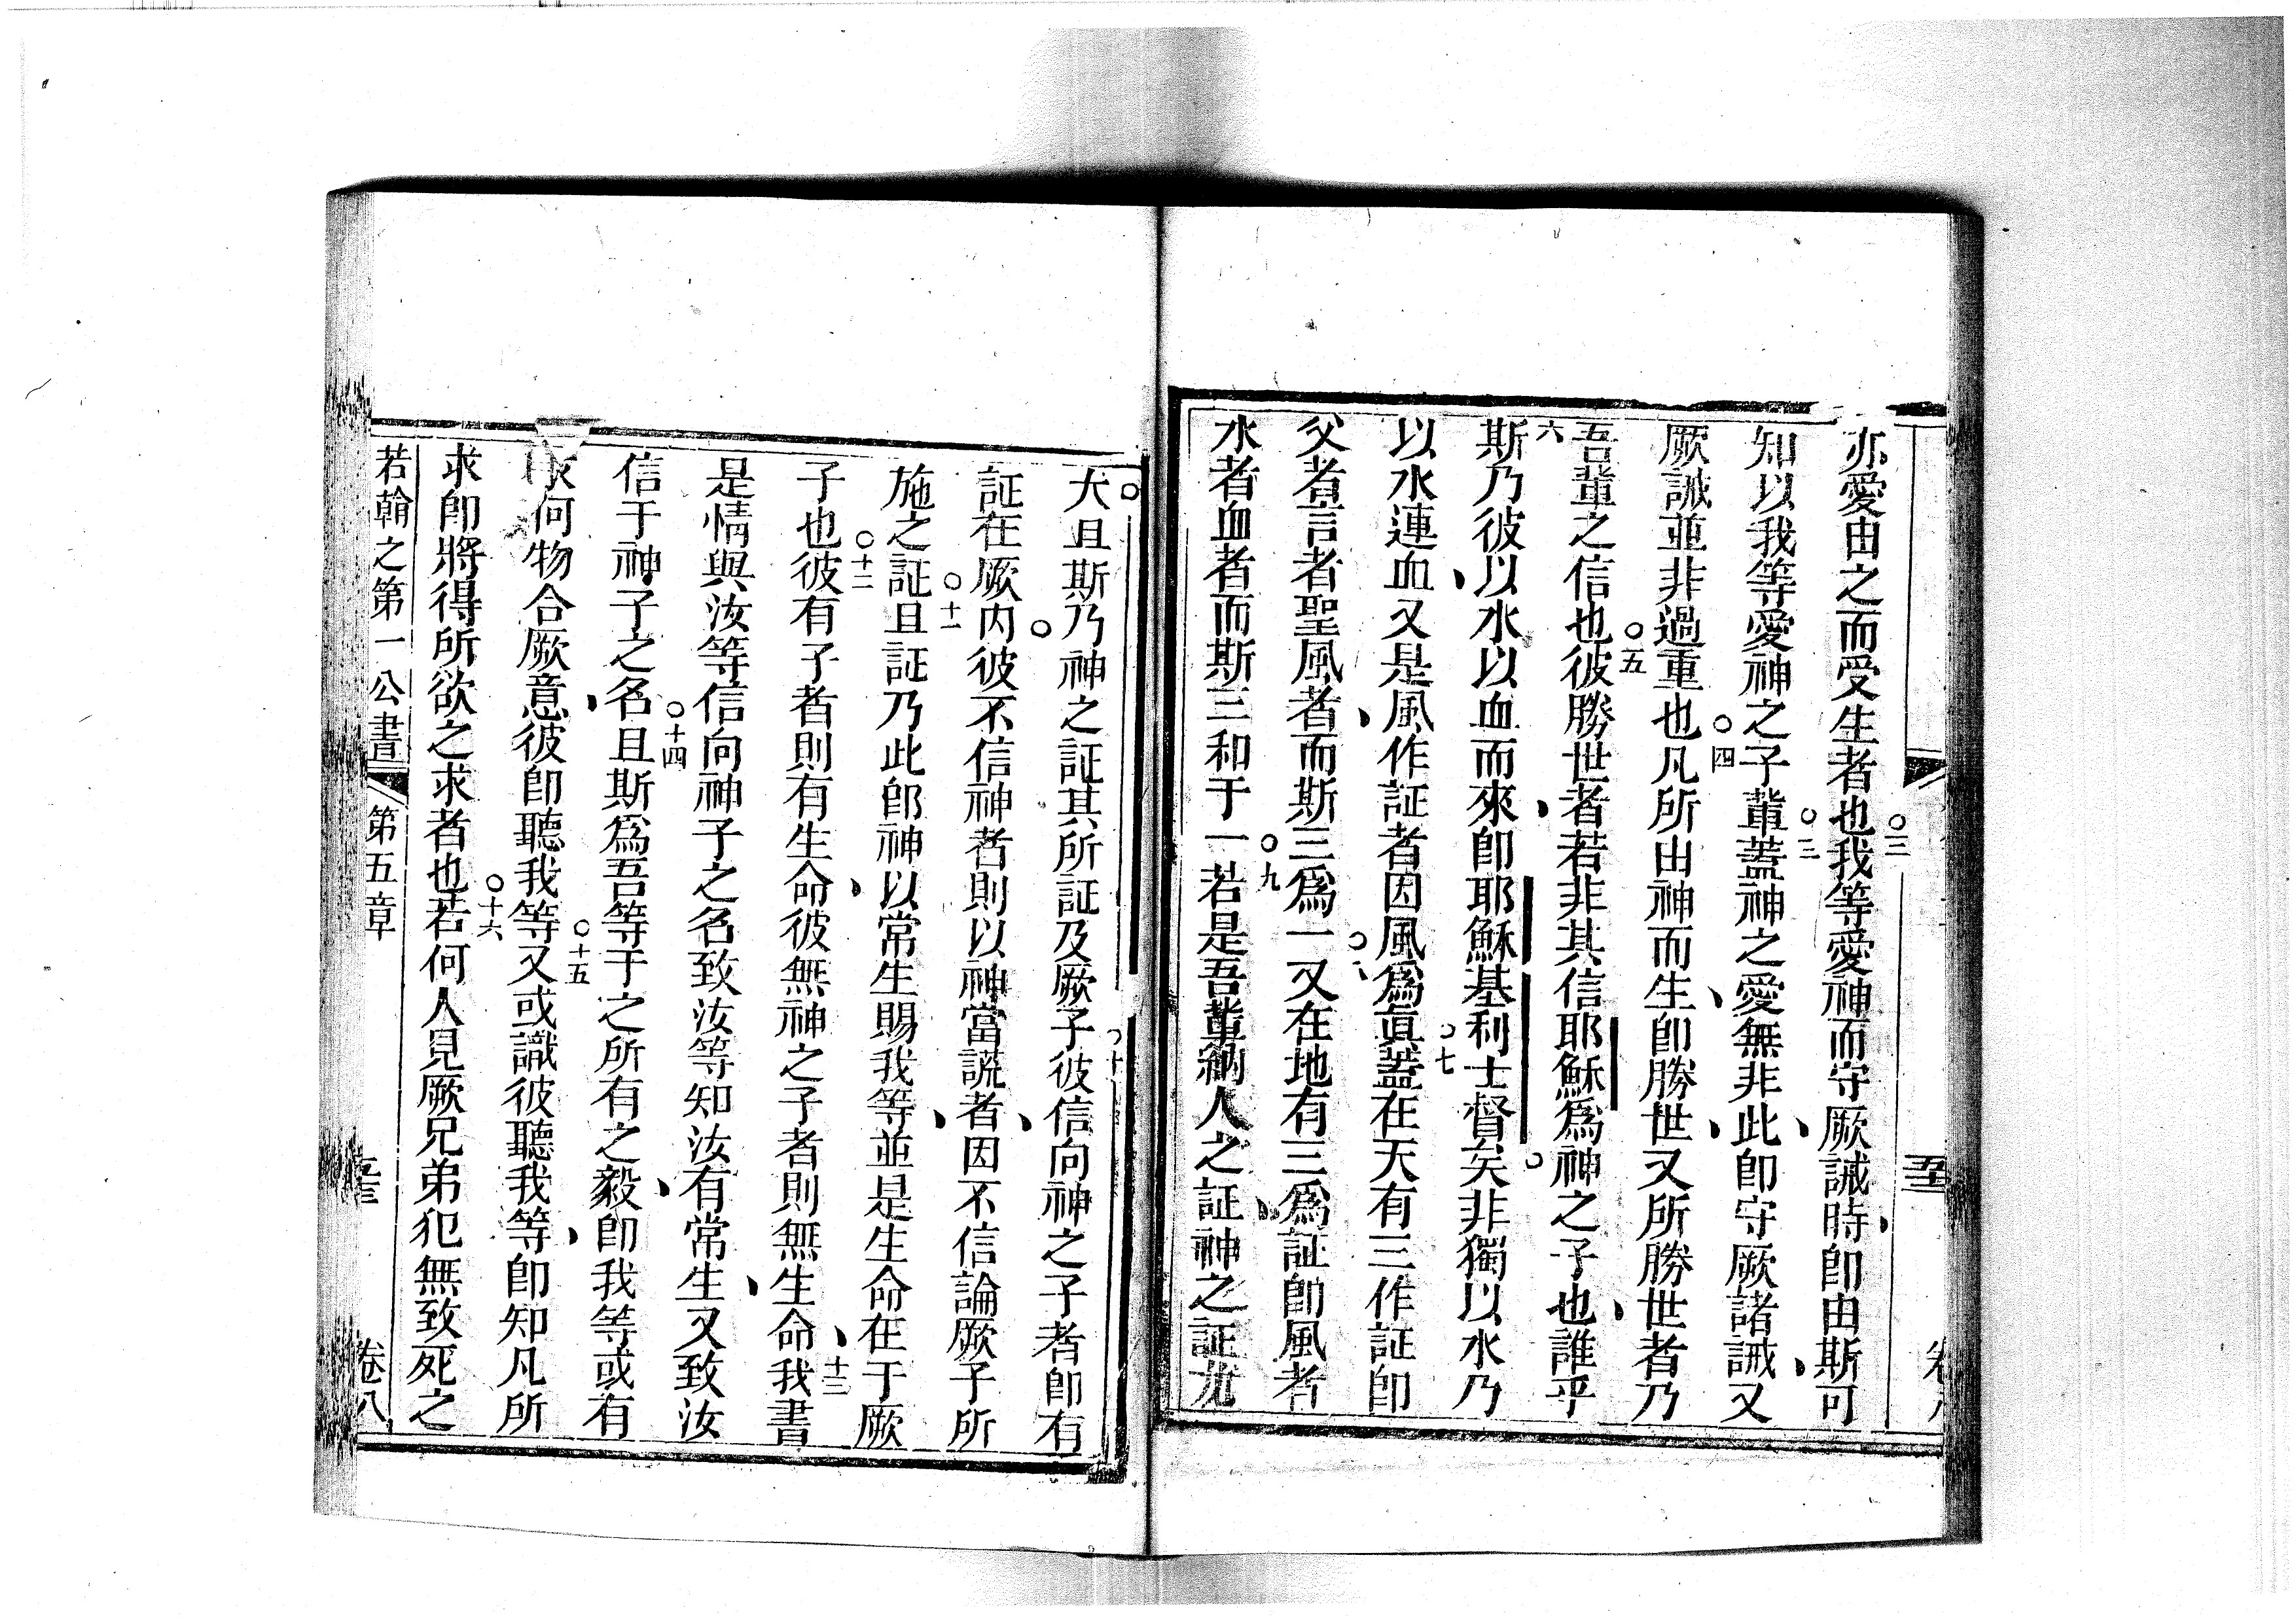 亦愛由之而受生者也○二我等愛神而守厥誡時卽由斯可
知以我等愛神之子輩○三蓋神之愛無非此卽守厥諸誡又
厥誡並非過重也○四凡所由神而生卽勝世又所勝世者乃
吾輩之信也○五彼勝世者若非其信耶穌爲神之子也誰乎
六斯乃彼以水以血而來卽耶穌基利士督矣非獨以水乃
以水連血又是風作証者因風爲眞○七蓋在天有三作証卽
父者言者聖風者而斯三爲一○八又在地有三爲証卽風者
水者血者而斯三和于一○九若是吾輩納人之証神之証尤
大且斯乃神之証其所証及厥子○十彼信向神之子者卽有
証在厥內彼不信神者則以神當謊者因不信論厥子所
施之証○十一且証乃此卽神以常生賜我等並是生命在于厥
子也○十二彼有子者則有生命彼無神之子者則無生命○十三我書
是情與汝等信向神子之名致汝等知汝有常生又致汝
信于神子之名○十四且斯爲吾等于之所有之毅卽我等或有
求何物合厥意彼卽聽我等○十五又或識彼聽我等卽知凡所
求卽將得所欲之求者也○十六若何人見厥兄弟犯無致死之
若翰之第一公書 第五章 卷八